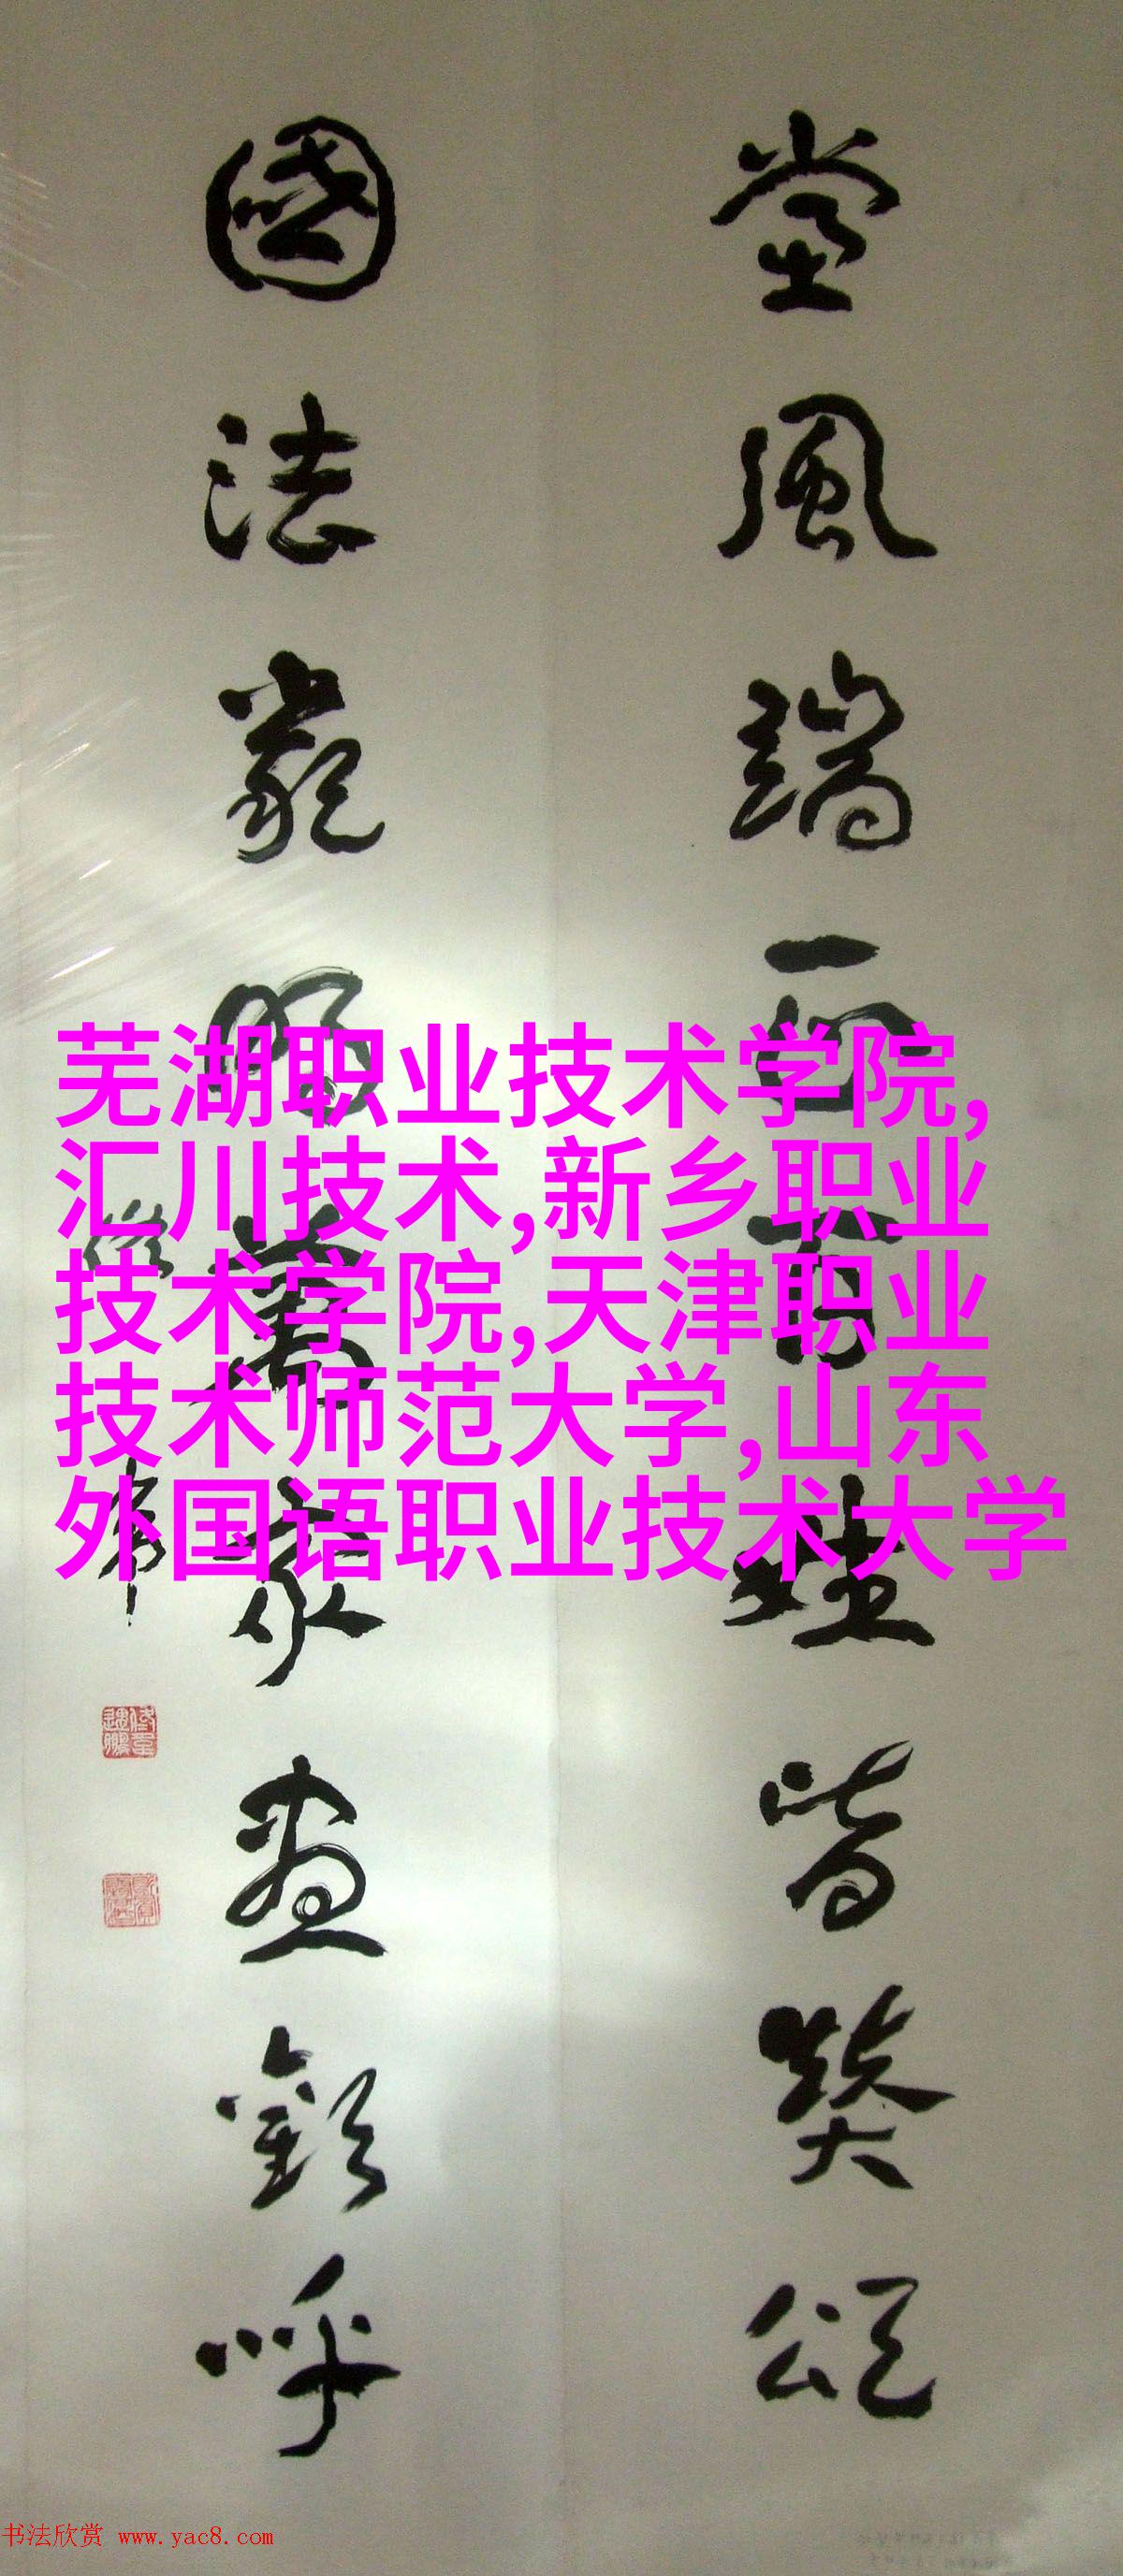 堂風端正百姓皆奬頌
國法嚴明萬衆盡歡呼
芜湖职业技术学院,
汇川技术,新乡职业
技术学院,天津职业
技术师范大学,山东
外国语职业技术大学
书法欣赏 www.yac8.com